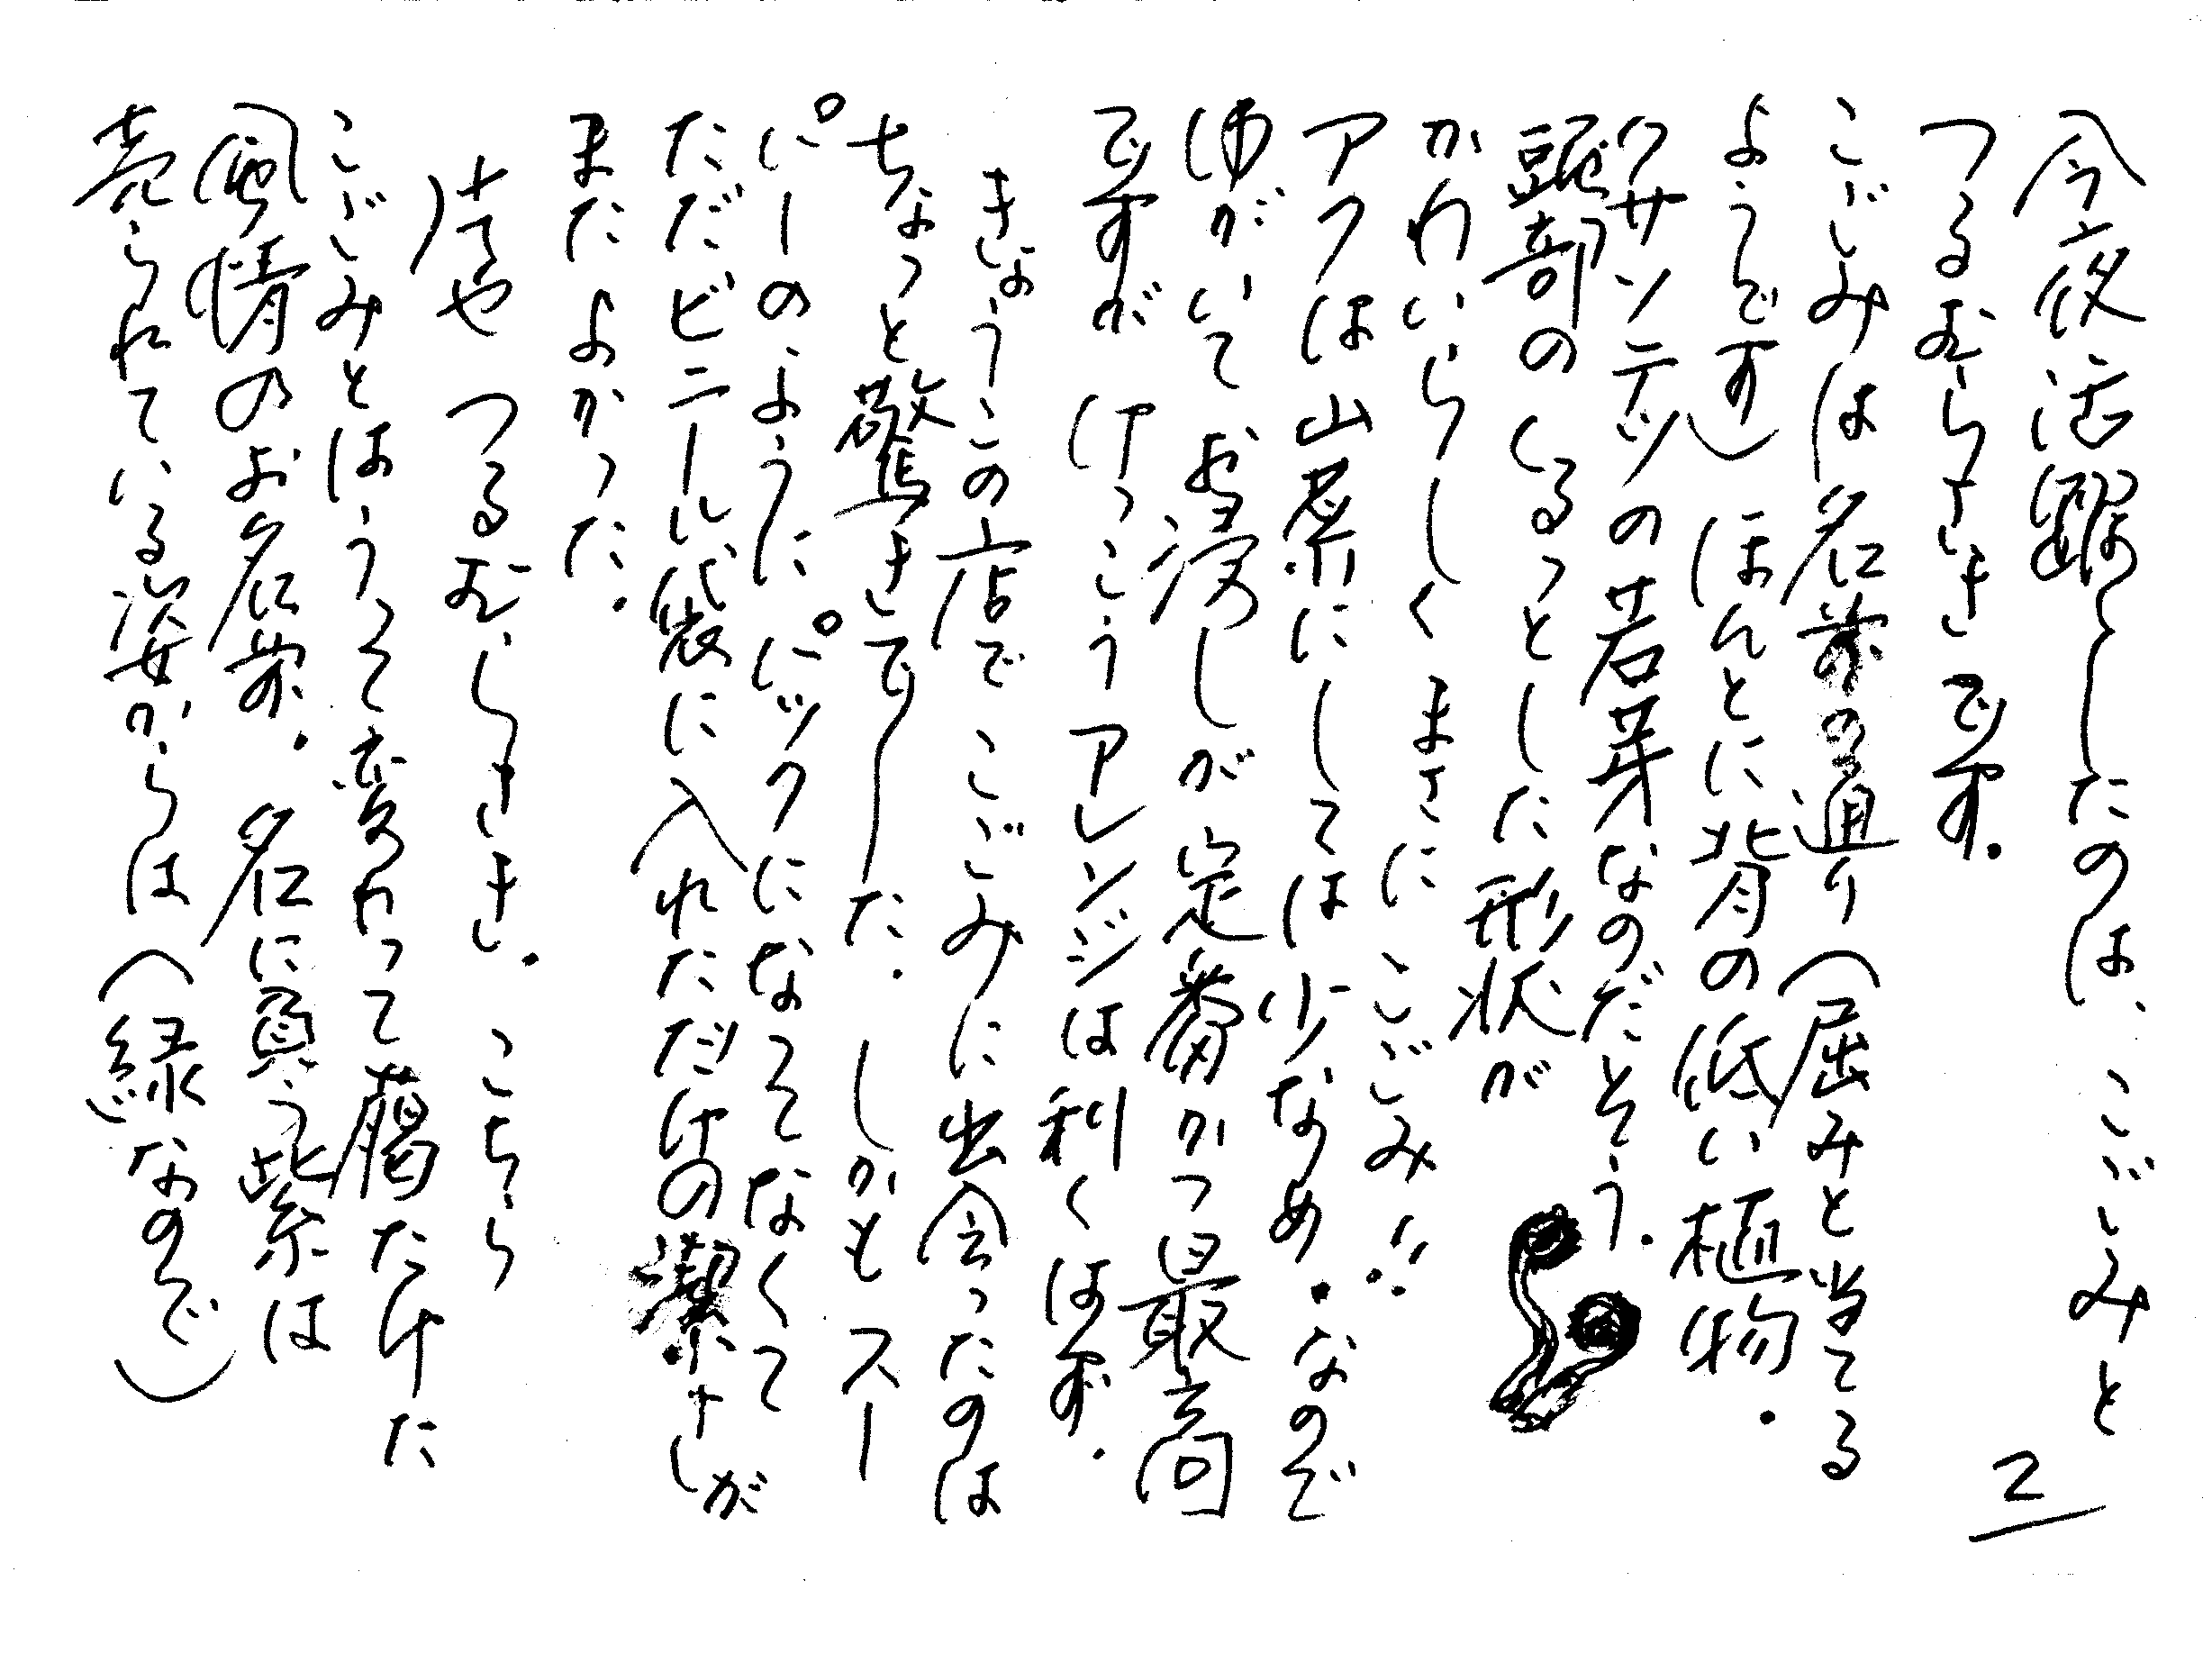 今夜活躍したのは、こごみと
つるむらさきです．
こごみは名前の通り（屈みと当てる
ようです） ほんとに背の低い植物．
クサソテツの若芽なのだとそう．
頭部のくるっとした形状が
かわいらしく まさに こごみ!!
アクは山菜にしては少なめ．なので
ゆがいて お浸しが定番かつ最高
ですが けっこうアレンジは利くはず．
きょうこの店で こごみに出会ったのは
ちょっと驚きでした． しかもスー
ぱーのように ぱックになってなくて
ただビニール袋に入れただけの潔さしが
またよかった．
さてや つるむらさき． こちら
こごみとはうって変わって﨟たけた
風情のお名前． 名に負う紫は
売られている姿からは（緑なので）
2